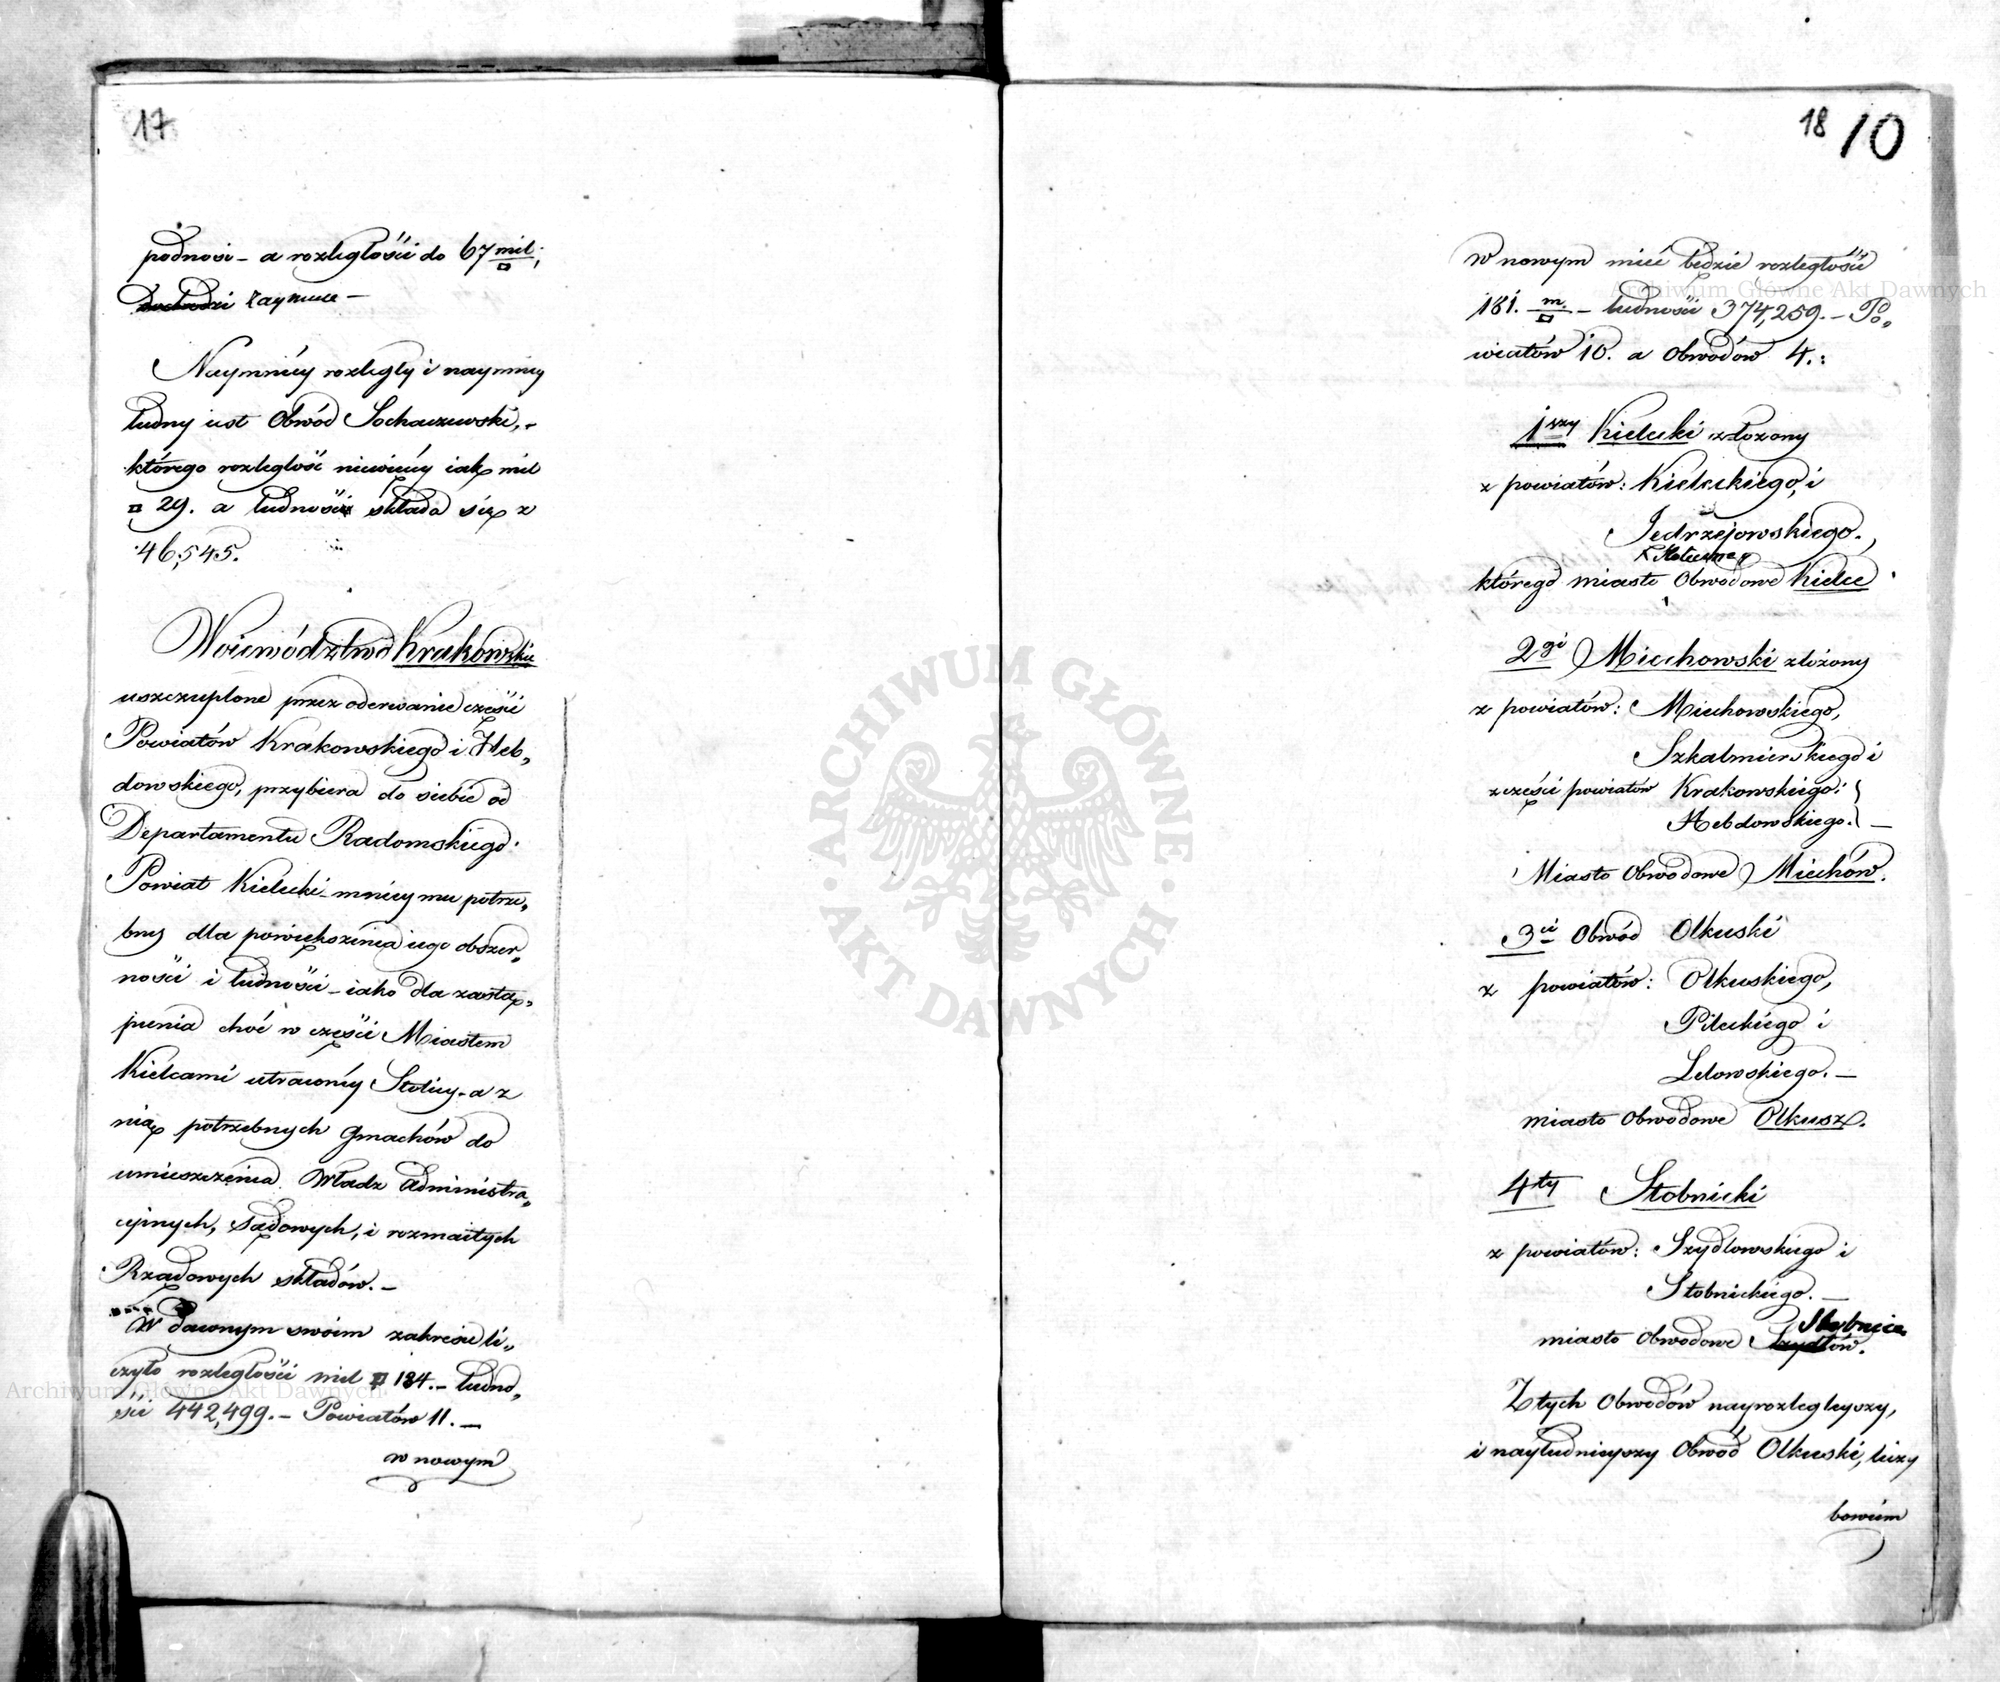 17
podnosi – a rozległości do 67 mil □;
dochodzi zaymuie –
Naymniéy rozległy i naymniéy
ludny iest Obwód Sochaczewski, –
którego rozległość niewięcéy iak mil
□ 29. a ludności składa się z
46,545.
Woiewództwo Krakowskie
uszczuplone przez oderwanie części
Powiatów Krakowskiego i Heb„
dowskiego, przybiera do siebie od
Departamentu Radomskiego
Powiat Kielecki – mniey mu potrze„
bny dla powiększenia iego obszer„
ności i ludności – iako dla zastą„
pienia choć w części Miastem
Kielcami utraconéy Stolicy – a z
nią potrzebnych Gmachów do
umieszczenia Władz administra„
cyinych, Sądowych, i rozmaitych
Rządowych składów. –
W dawnym swoim zakresie li„
czyło rozległości mil □ 184. – ludno„
ści 442,499. – Powiatów 11. –
w nowym
18 10
w nowym mieć będzie rozległości
181. m. □ – ludności 374,259. – Po„
wiatów 10. a Obwodów 4.:
1szy Kielecki złożony
z powiatów: Kieleckiego, i
Jedrzejowskiego.,
którego miasto Obwodowe Kielce
2gi Miechowski złożony
z powiatów: Miechowskiego,
Szkalmierskiego i
z części powiatów Krakowskiego
Hebdowskiego. –
Miasto Obwodowe Miechów.
3ci Obwód Olkuski
z powiatów: Olkuskiego,
Pileckiego i
Lelowskiego. –
miasto Obwodowe Olkusz.
4ty Stobnicki
z powiatów: Szydlowskiego i
Stobnickiego. –
Stobnica
miasto Obwodowe Szydłów.
Z tych Obwodów nayrozlegleyszy,
i nayludnieyszy Obwód Olkuski, liczy
bowiem
ARCHIWUM GŁÓWNE
AKT DAWNYCH
Archiwum Główne Akt Dawnych
Archiwum Główne Akt Dawnych